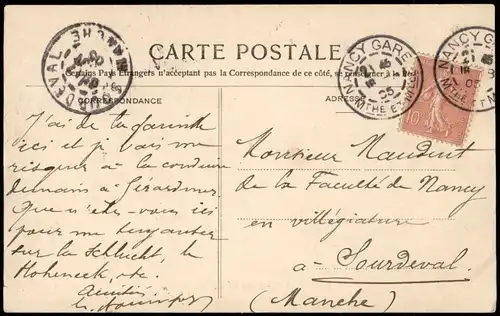 CARTE POSTALE
Certains Pays Etrangers n'acceptant pas la Correspondance de ce côté, se
CORRESPONDANCE
ADRESSE
J'ai de la famille
ici et je vais me
risquer à la conduire
demain à Gérardmer
Que n'êtes-vous ici
pour me
sur la Schlucht, le
Hoheneck, etc.
Amitiés
Monsieur Mauduit
de la Faculté de Nancy
en villégiature
à Sourdeval
(Manche)
SOURDEVAL MANCHE
NANCY GARE
21 8 05
MTHE ET MLLE
NANCY GARE
21 8 05
MTHE
10